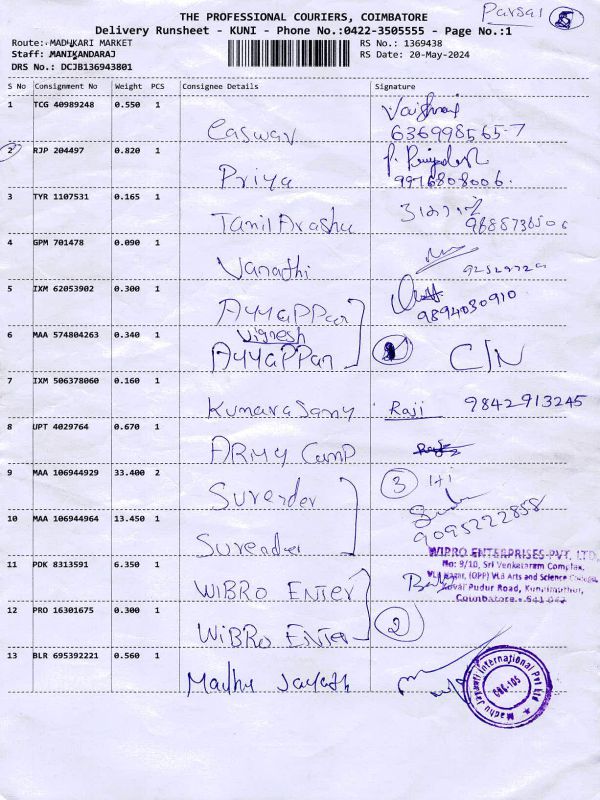 THE PROFESSIONAL COURIERS, COIMBATORE
Parsal
Delivery Runsheet - KUNI - Phone No.:0422-3505555 - Page No.:1
Route: MADUKARI MARKET
RS No.: 1369438
Staff: MANIKANDARAJ
RS Date: 20-May-2024
DRS No.: DCJB136943801
S No Consignment No Weight PCS Consignee Details Signature
1 TCG 40989248 0.550 1
Easwar
2 RJP 204497 0.820 1
Priya
9976808006.
3 TYR 1107531 0.165 1
Tamil Arashu
4 GPM 701478 0.090 1
Vanathi
5 IXM 62053902 0.300 1
Ayyappan
9894030910
6 MAA 574804263 0.340 1
Vignesh
Ayyappan C/N
7 IXM 506378060 0.160 1
Kumarasamy Raji 9842913245
8 UPT 4029764 0.670 1
ARMY Camp
9 MAA 106944929 33.400 2
Surender 3
10 MAA 106944964 13.450 1
9095222858
Surender
11 PDK 8313591 6.350 1
WIPRO ENTERPRISES PVT. LTD.
No: 9/10, Sri Venketaram Complex,
WIBRO ENTER
VLB Nagar, (OPP) VLB Arts and Science College,
Kovai Pudur Road, Kuniamuthur,
Coimbatore - 641 042
12 PRO 16301675 0.300 1
WiBRO ENTER 2
13 BLR 695392221 0.560 1
Madhu Jayath
Madhu Jayanti International Pvt Ltd